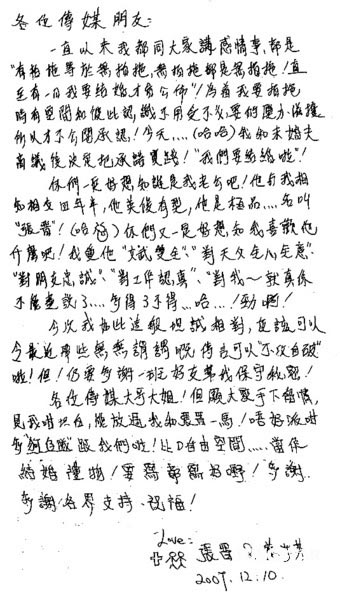 各位傳媒朋友:
一直以來我都同大家講感情事,都是
"有拍拖等於無拍拖,無拍拖都是無拍拖!直
至有一日我要結婚才會公佈"!為着我要拍拖
時有空間和彼此認識,不用受不必要的壓力
所以才不公開承認!今天....(哈哈)我和未婚夫
商議後決定把承諾實踐!"我們要結婚啦"!
你們一定好想知誰是我老公吧!他與我相
知相交四年半,他英俊有型,他是極品....名叫
"張晋"!(哈哈)你們又一定好想知我喜歡他
什麼呢!我重他"文武雙全"、"對天父全心全意"、
"對朋友忠誠"、"對工作認真"、"對我~就真係
不能盡說了....多得3不得...哈...!勁啊!
今次我在此這般坦誠相對,應該可以
令最近那些無無謂謂嘅傳言可以"不攻自破"
啦!但!仍要多謝一班好友幫我保守秘密!
各位傳媒大哥大姐!但願大家手下留情,
見我咁坦白,放過我和張晋一馬!唔好派咁
多"狗仔隊"跟我們啦!比D自由空間.....當係
結婚禮物!要寫都寫好嘢!多謝.
多謝各界支持、祝福!
Love:
張晋 & 蔡少芬
2007.12.10.